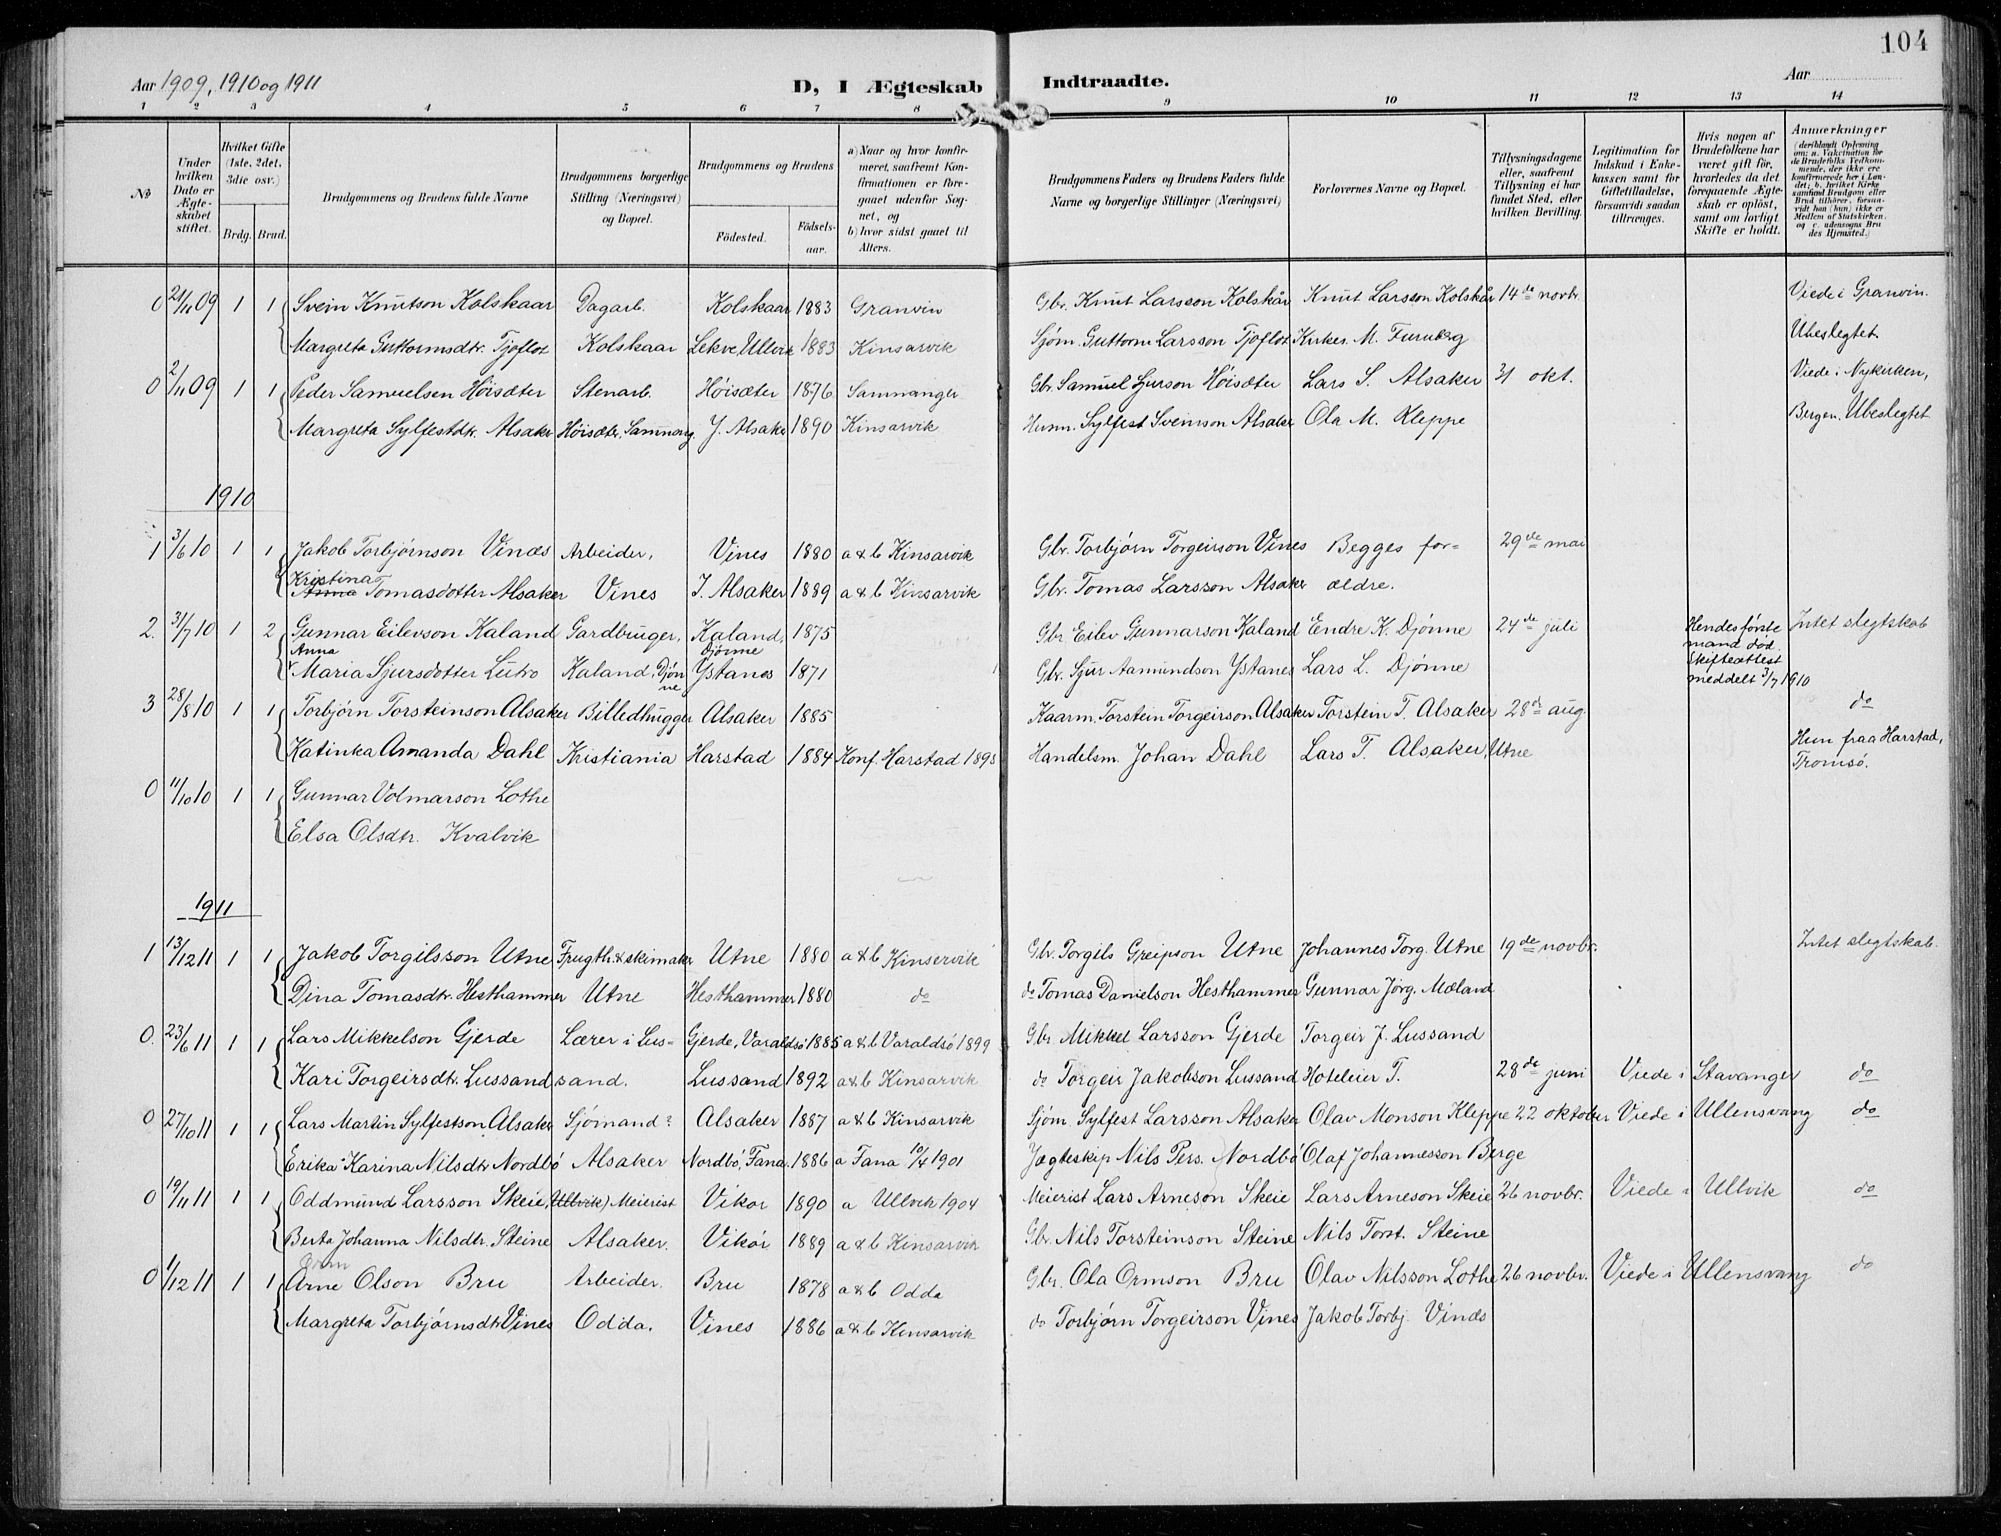 104
Aar 1909, 1910 og 1911 D, I Ægteskab Indtraadte. Aar
1 2 3 4 5 6 7 8 9 10 11 12 13 14
No
Under hvilken Dato er Ægteskabet stiftet.
Hvilket Gifte (1ste, 2det, 3die osv.)
Brdg. Brud.
Brudgommens og Brudens fulde Navne
Brudgommens borgerlige Stilling (Næringsvei) og Bopæl.
Brudgommens og Brudens
Fødested. Fødselsaar.
a) Naar og hvor konfirmeret, saafremt Konfirmationen er foregaaet udenfor Sognet, og
b) hvor sidst gaaet til Alters.
Brudgommens Faders og Brudens Faders fulde Navne og borgerlige Stillinger (Næringsvei)
Forlovernes Navne og Bopæl.
Tillysningsdagene eller, saafremt Tillysning ei har fundet Sted, efter hvilken Bevilling.
Legitimation for Indskud i Enkekassen samt for Giftetilladelse, forsaavidt saadan tiltrænges.
Hvis nogen af Brudefolkene har været gift før, hvorledes da det foregaaende Ægteskab er opløst, samt om lovligt Skifte er holdt.
Anmærkninger (deriblandt Oplysning om: a. Vakcination for de Brudefolks Vedkommende, der ikke ere konfirmerede her i Landet; b. hvilket Kirkesamfund Brudgom eller Brud tilhører, forsaavidt han (hun) ikke er Medlem af Statskirken, og c. udensogns Brudes Hjemsted.)
0 21/11 09 1 1 Svein Knutson Kolskaar Dagarb. Kolskaar 1883 Granvin Gbr. Knut Larsson Kolskår Knut Larsson Kolskår 14de novbr. Viede i Granvin.
Margreta Guttormsdtr. Tjoflot Kolskaar Lekve, Ullvik 1883 Kinsarvik Sjøm. Guttorm Larsson Tjoflot Kirkes. M. Furuberg Ubeslegtet
0 2/11 09 1 1 Peder Samuelsen Høisæter Stenarb. Høisæter 1876 Samnanger Gbr. Samuel Sjurson Høisæter Lars S. Alsaker 31 okt. Viede i Nykirken,
Margreta Sylfestdtr. Alsaker Høisæter, Samnang. Y. Alsaker 1890 Kinsarvik Husm. Sylfest Sveinson Alsaker Ola M. Kleppe Bergen. Ubeslegtet
1910
1 3/6 10 1 1 Jakob Torbjørnson Vines Arbeider, Vines 1880 a & b Kinsarvik Gbr. Torbjørn Torgeirson Vines Begges for- 29de mai
Kristina
Anna Tomasdotter Alsaker Vines I. Alsaker 1889 a & b Kinsarvik Gbr. Tomas Larsson Alsaker ældre.
2. 31/7 10 1 2 Gunnar Eilevson Kaland Gardbruger, Kaland, 1875 Gbr Eilev Gunnarson Kaland Endre K. Djønne 24de juli Hendes første mand død. Skifteattest meddelt 3/7 1910 Intet slegtskab
Anna Djønne
Maria Sjursdotter Lutro Kaland, Djønne Ystanes 1871 Gbr. Sjur Aamundson Ystanes Lars L. Djønne
3 28/8 10 1 1 Torbjørn Torsteinson Alsaker Billedhugger Alsaker 1885 Kaarm. Torstein Torgeirson Alsaker Torstein T. Alsaker 28de aug. do
Katinka Amanda Dahl Kristiania Harstad 1884 Konf. Harstad 1898 Handelsm. Johan Dahl Lars T. Alsaker, Utne Hun fraa Harstad, Tromsø.
0 11/10 10 1 1 Gunnar Volmarson Lothe
Elsa Olsdtr. Kvalvik
1911
1 13/12 11 1 1 Jakob Torgilsson Utne Frugth. & skimaker Utne 1880 a & b Kinservik Gbr. Torgils Greipson Utne Johannes Torg. Utne 19de novbr. Intet slegtskab.
Dina Tomasdtr. Hesthammer Utne Hesthammer 1880 do do Tomas Danielson Hesthammer Gunnar Jørg. Mæland
0. 23/6 11 1 1 Lars Mikkelson Gjerde Lærer i Lus- Gjerde, Varaldsø 1885 a & b Varaldsø 1899 Gbr. Mikkel Larsson Gjerde Torgeir J. Lussand
Kari Torgeirsdtr. Lussand sand. Lussand 1892 a & b Kinsarvik do Torgeir Jakobson Lussand Hoteleier T. 28de juni Viede i Stavanger do
0 27/10 11 1 1 Lars Martin Sylfestson Alsaker Sjømand? Alsaker 1887 a & b Kinsarvik Sjøm Sylfest Larsson Alsaker Olav Monson Kleppe 22 oktober Viede i Ullensvang do
Erika Karina Nilsdtr Nordbø Alsaker Nordbø, Fana. 1886 a Fana 10/4 1901 Jægteskip Nils Pers. Nordbø Olaf Johannesson Berge
0 19/11 11 1 1 Oddmund Larsson Skeie, (Ullvik) Meierist Vikør 1890 a Ullvik 1904 Meierist Lars Arneson Skeie Lars Arneson Skeie 26 novbr. Viede i Ullvik do
Berta Johanna Nilsdtr. Steine Alsaker. Vikør 1889 a & b Kinsarvik Gbr. Nils Torsteinson Steine Nils Torst. Steine
Orm
0 1/12 11 1 1 Arne Olson Bru Arbeider. Bru 1878 a & b Odda Gbr. Ola Ormson Bru Olav Nilsson Lothe 26 novbr. Viede i Ullensvang do
Margreta Torbjørnsdtr Vines Odda. Vines 1886 a & b Kinsarvik do Torbjørn Torgeirson Vines Jakob Torbj. Vines